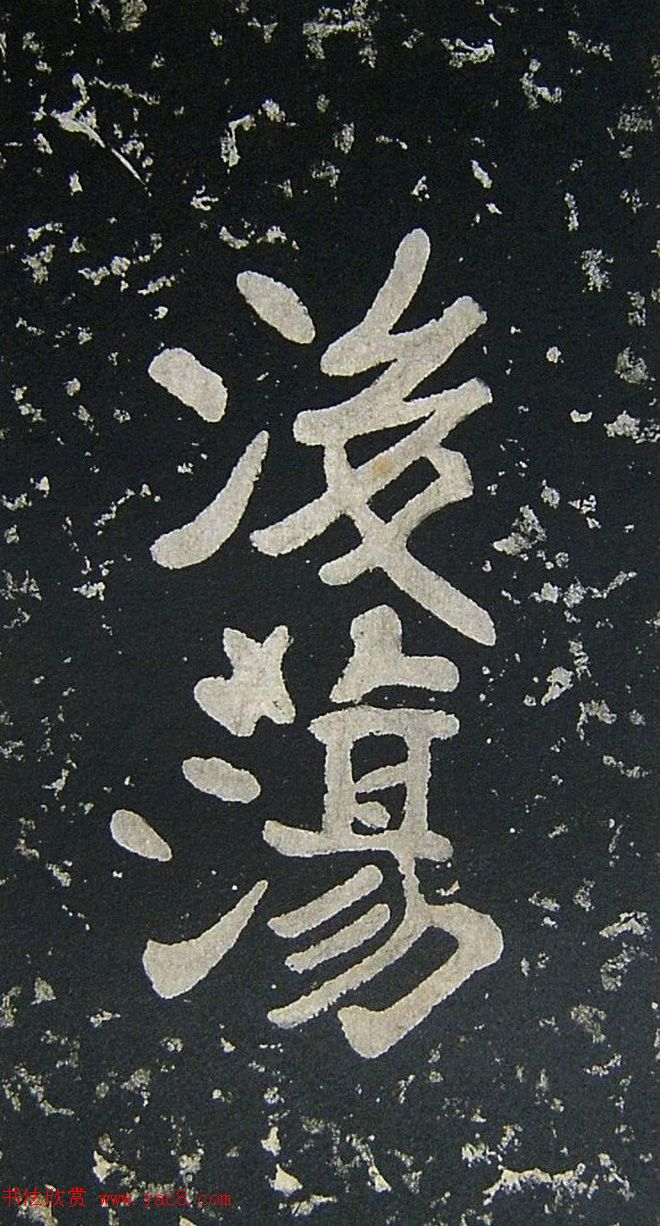 浚蕩
书法欣赏 www.yac8.com